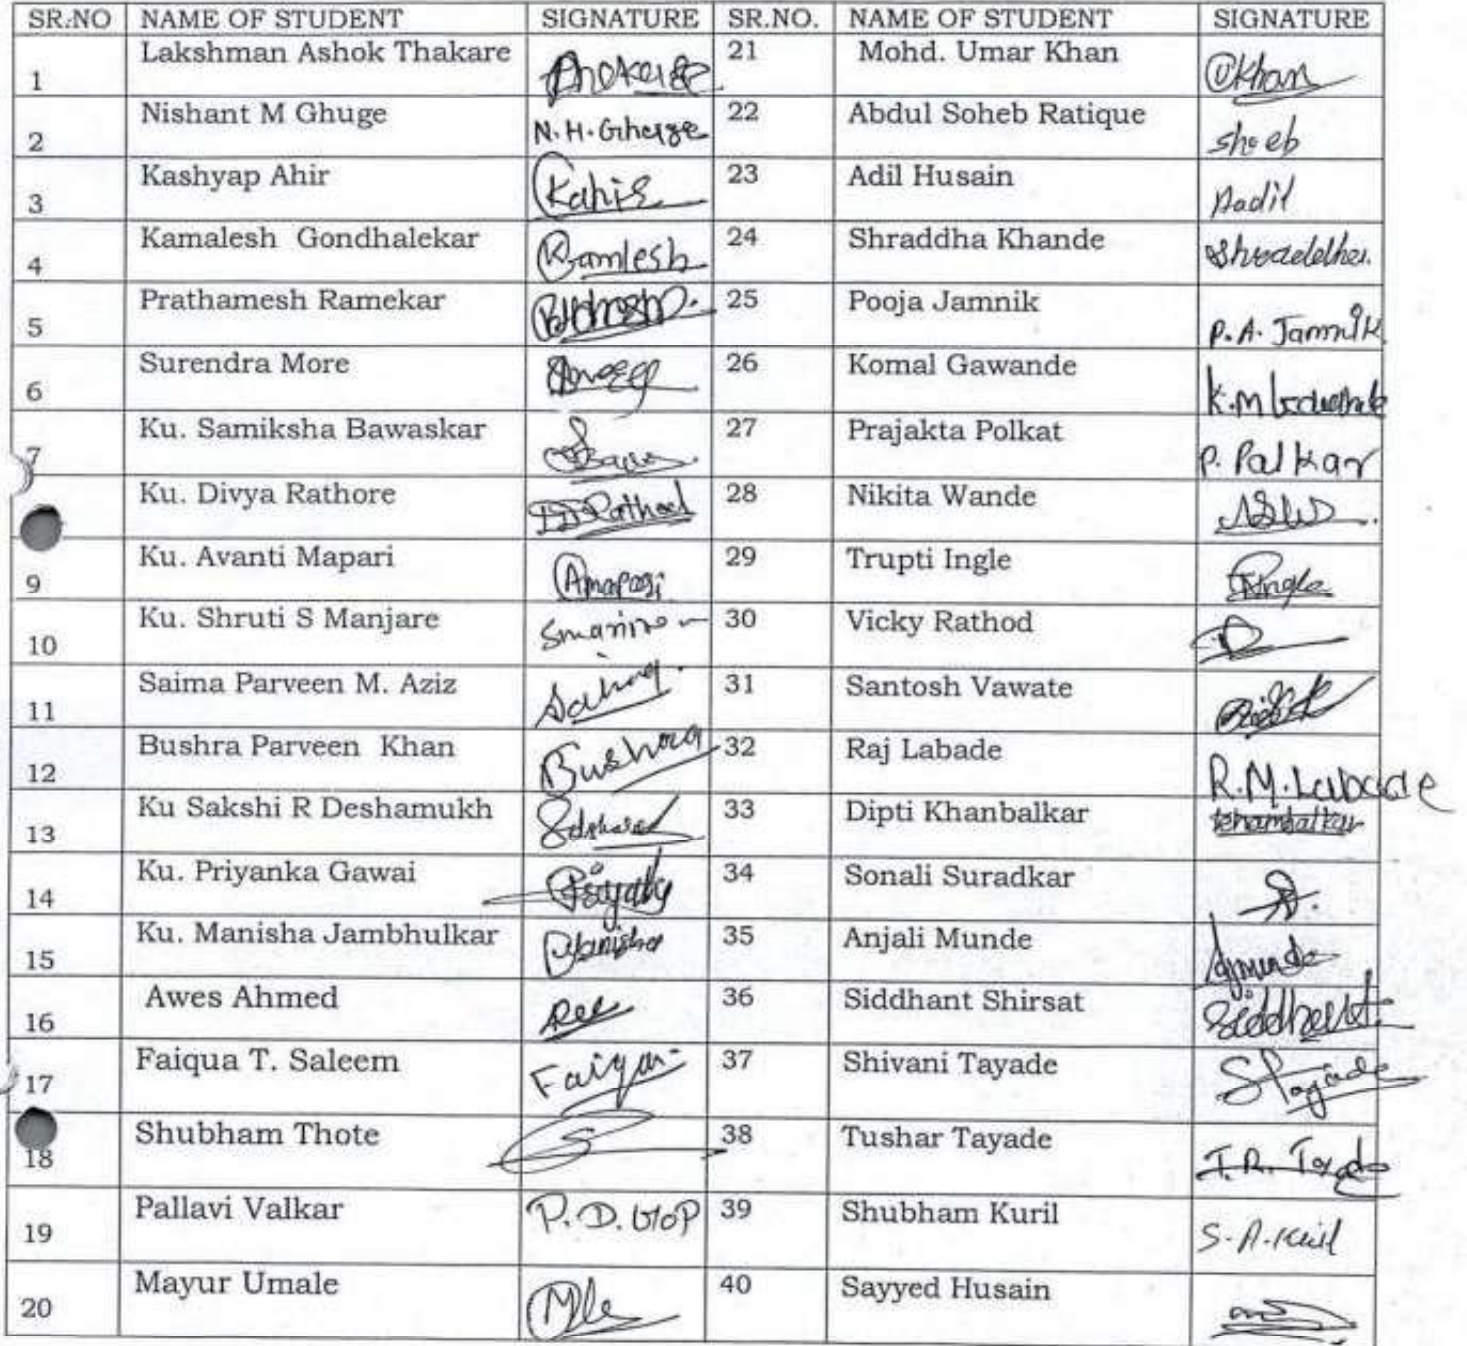 SR.NO NAME OF STUDENT SIGNATURE SR.NO. NAME OF STUDENT SIGNATURE
1 Lakshman Ashok Thakare 21 Mohd. Umar Khan UKhan
2 Nishant M Ghuge N.H.Ghuge 22 Abdul Soheb Ratique Shoeb
3 Kashyap Ahir Kahir 23 Adil Husain Aadil
4 Kamalesh Gondhalekar Kamlesh 24 Shraddha Khande Shraddha.
5 Prathamesh Ramekar 25 Pooja Jamnik P.A. Jamnik
6 Surendra More 26 Komal Gawande K.M
7 Ku. Samiksha Bawaskar 27 Prajakta Polkat P. Palkar
Ku. Divya Rathore 28 Nikita Wande
9 Ku. Avanti Mapari Amapari 29 Trupti Ingle Tingle
10 Ku. Shruti S Manjare 30 Vicky Rathod
11 Saima Parveen M. Aziz Saima. 31 Santosh Vawate
12 Bushra Parveen Khan Bushra 32 Raj Labade R.M.Labade
13 Ku Sakshi R Deshamukh 33 Dipti Khanbalkar Khambalkar
14 Ku. Priyanka Gawai 34 Sonali Suradkar
15 Ku. Manisha Jambhulkar Manisha 35 Anjali Munde Ajmunde
16 Awes Ahmed 36 Siddhant Shirsat Siddhant.
17 Faiqua T. Saleem Faiqua 37 Shivani Tayade STayade
18 Shubham Thote S 38 Tushar Tayade T.R. Tayade
19 Pallavi Valkar P.D. 39 Shubham Kuril S.A.Kuril
20 Mayur Umale 40 Sayyed Husain